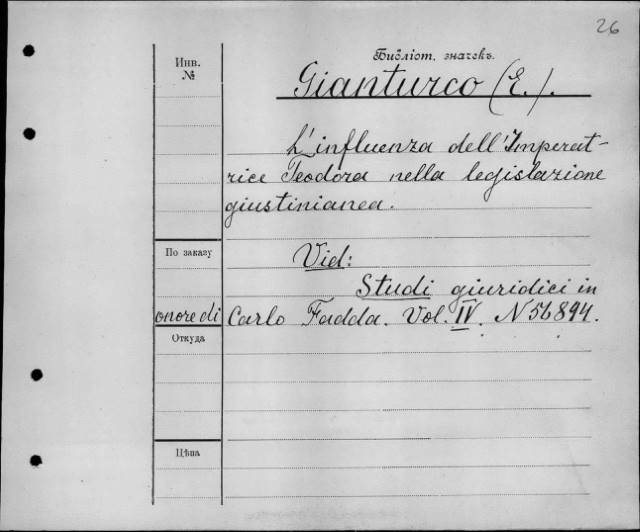 26
Инв.
№
Библіот. значекъ.
Gianturco (E.).
L'influenza dell'Imperat-
rice Teodora nella legislazione
giustinianea.
По заказу
Vid:
Studi giuridici in
onore di Carlo Fadda. Vol. IV. N 56894.
Откуда
Цѣна